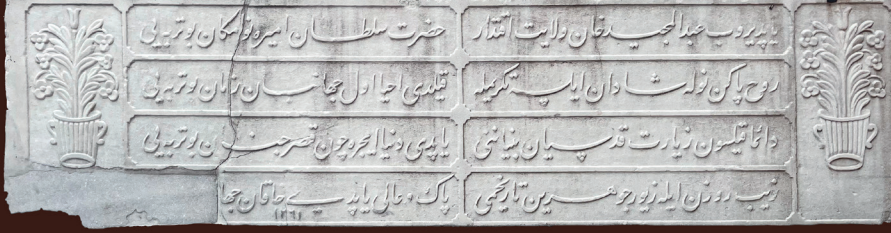 یاپدیروب عبدالمجید خان ولایت اقتدار حضرت سلطان امیره نومکان بو تربه یی
روح پاکن نوله شادان ایلسه تکریمله قیلدی احیا اول جهانبان زمان بو تربه یی
دائما قیلسون زیارت قدسیان بنیاننی یاپدی دنیا ایچره چون قصر جنان بو تربه یی
زیب روزن ایله زیور جوهرین تاریخمی پاک و عالی یاپدی خاقان جها
١٢٦١